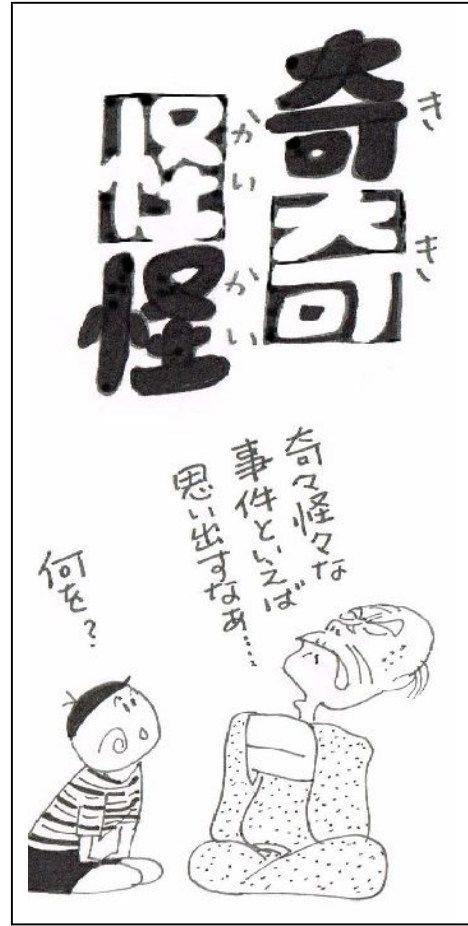 奇奇
きき
怪怪
かいかい
奇々怪々な
事件といえば
思い出すなあ…
何を?